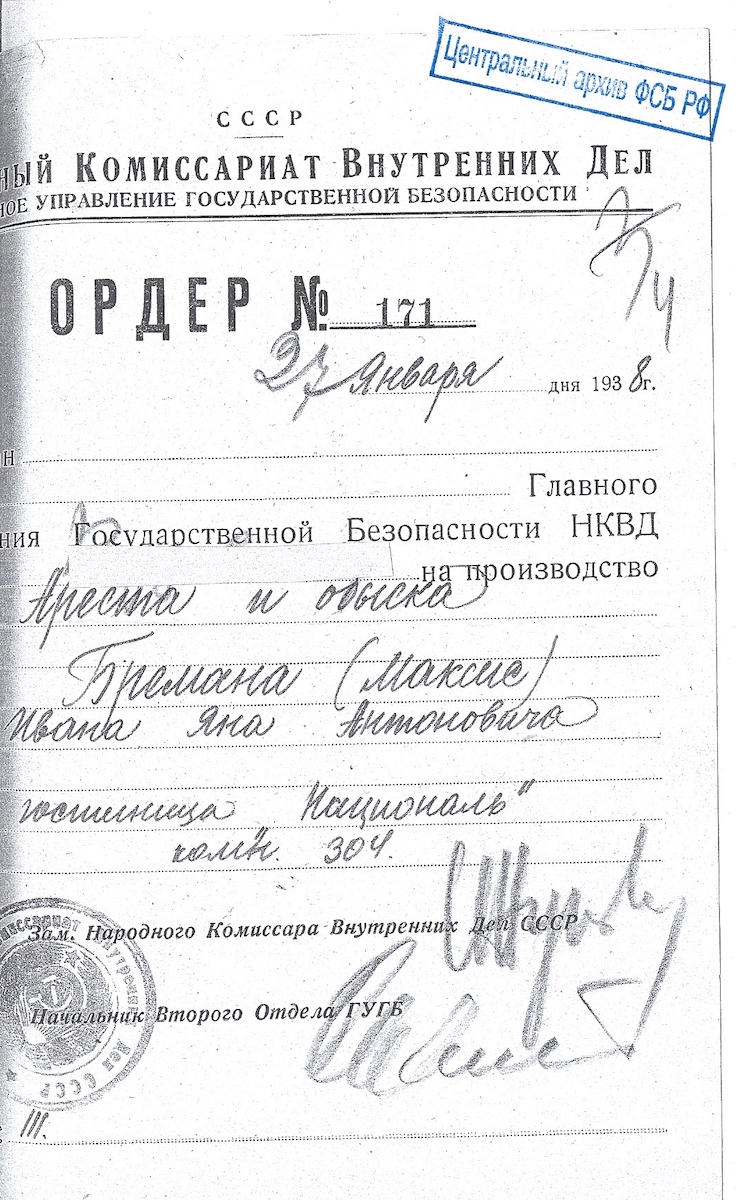 Центральный архив ФСБ РФ
СССР
ный Комиссариат Внутренних Дел
ное управление государственной безопасности
ОРДЕР № 171
27 Января дня 1938г.
н
Главного
ния Государственной Безопасности НКВД
на производство
Ареста и обыска
Бремана (Максис)
Ивана Яна Антоновича
гостиница Националь"
комн. 304.
Зам. Народного Комиссара Внутренних Дел СССР
Начальник Второго Отдела ГУГБ